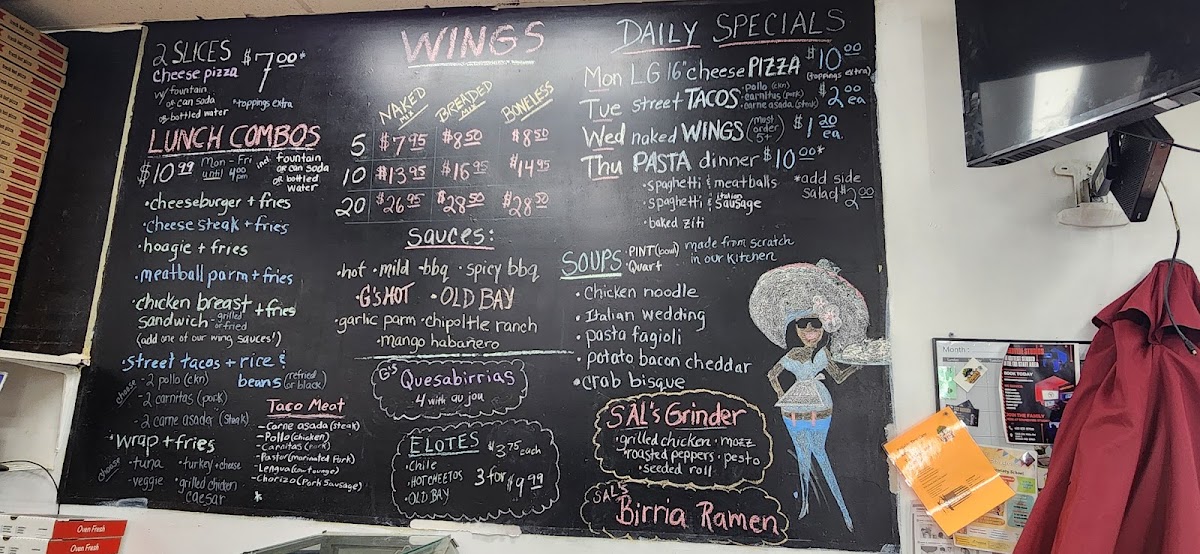 2 SLICES
cheese pizza
$7.00*
w/ fountain
or can soda
or bottled water
*toppings extra
LUNCH COMBOS
$10.99 Mon - Fri until 4:00 pm
incl fountain
or can soda
or bottled
water
• cheeseburger + fries
• cheese steak + fries
• hoagie + fries
• meatball parm + fries
• chicken breast
sandwich - grilled or fried + fries
(add one of our wing sauces!)
• street tacos + rice &
beans (refried or black)
choose
- 2 pollo (ckn)
- 2 carnitas (pork)
- 2 carne asada (steak)
• wrap + fries
choose
• tuna • turkey + cheese
- veggie • grilled chicken
caesar
Taco Meat
- Carne asada (steak)
- Pollo (chicken)
- Carnitas (pork)
- Pastor (marinated Pork)
- Lengua (cow tounge)
- Chorizo (Pork Sausage)
*
WINGS
NAKED BREADED BONELESS
5 $7.95 $8.50 $8.50
10 $13.95 $16.95 $14.95
20 $26.95 $28.50 $28.50
sauces:
• hot • mild • bbq • spicy bbq
• G'S HOT • OLD BAY
• garlic parm • chipoltle ranch
• mango habañero
G's
Quesabirrias
4 with au jou
ELOTES $3.75 each
• Chile
• HOT CHEETOS
• OLD BAY
3 for $9.99
DAILY SPECIALS
Mon LG 16" cheese PIZZA $10.00
(toppings extra)
Tue street TACOS $2.00 ea
• pollo (ckn)
• carnitas (pork)
• carne asada (steak)
Wed naked WINGS (must order 5+) $1.20 ea.
Thu PASTA dinner $10.00*
• spaghetti & meatballs
• spaghetti & Italian sausage
• baked ziti
*add side
salad $2.00
SOUPS • PINT (bowl)
• Quart
made from scratch
in our kitchen
• chicken noodle
• Italian wedding
• pasta fagioli
• potato bacon cheddar
• crab bisque
SAL'S Grinder
• grilled chicken • mozz
• roasted peppers • pesto
• seeded roll
SAL'S
Birria Ramen
Oven Fresh
Oven Fresh
Month:
BOOK TODAY
JOIN THE FAMILY